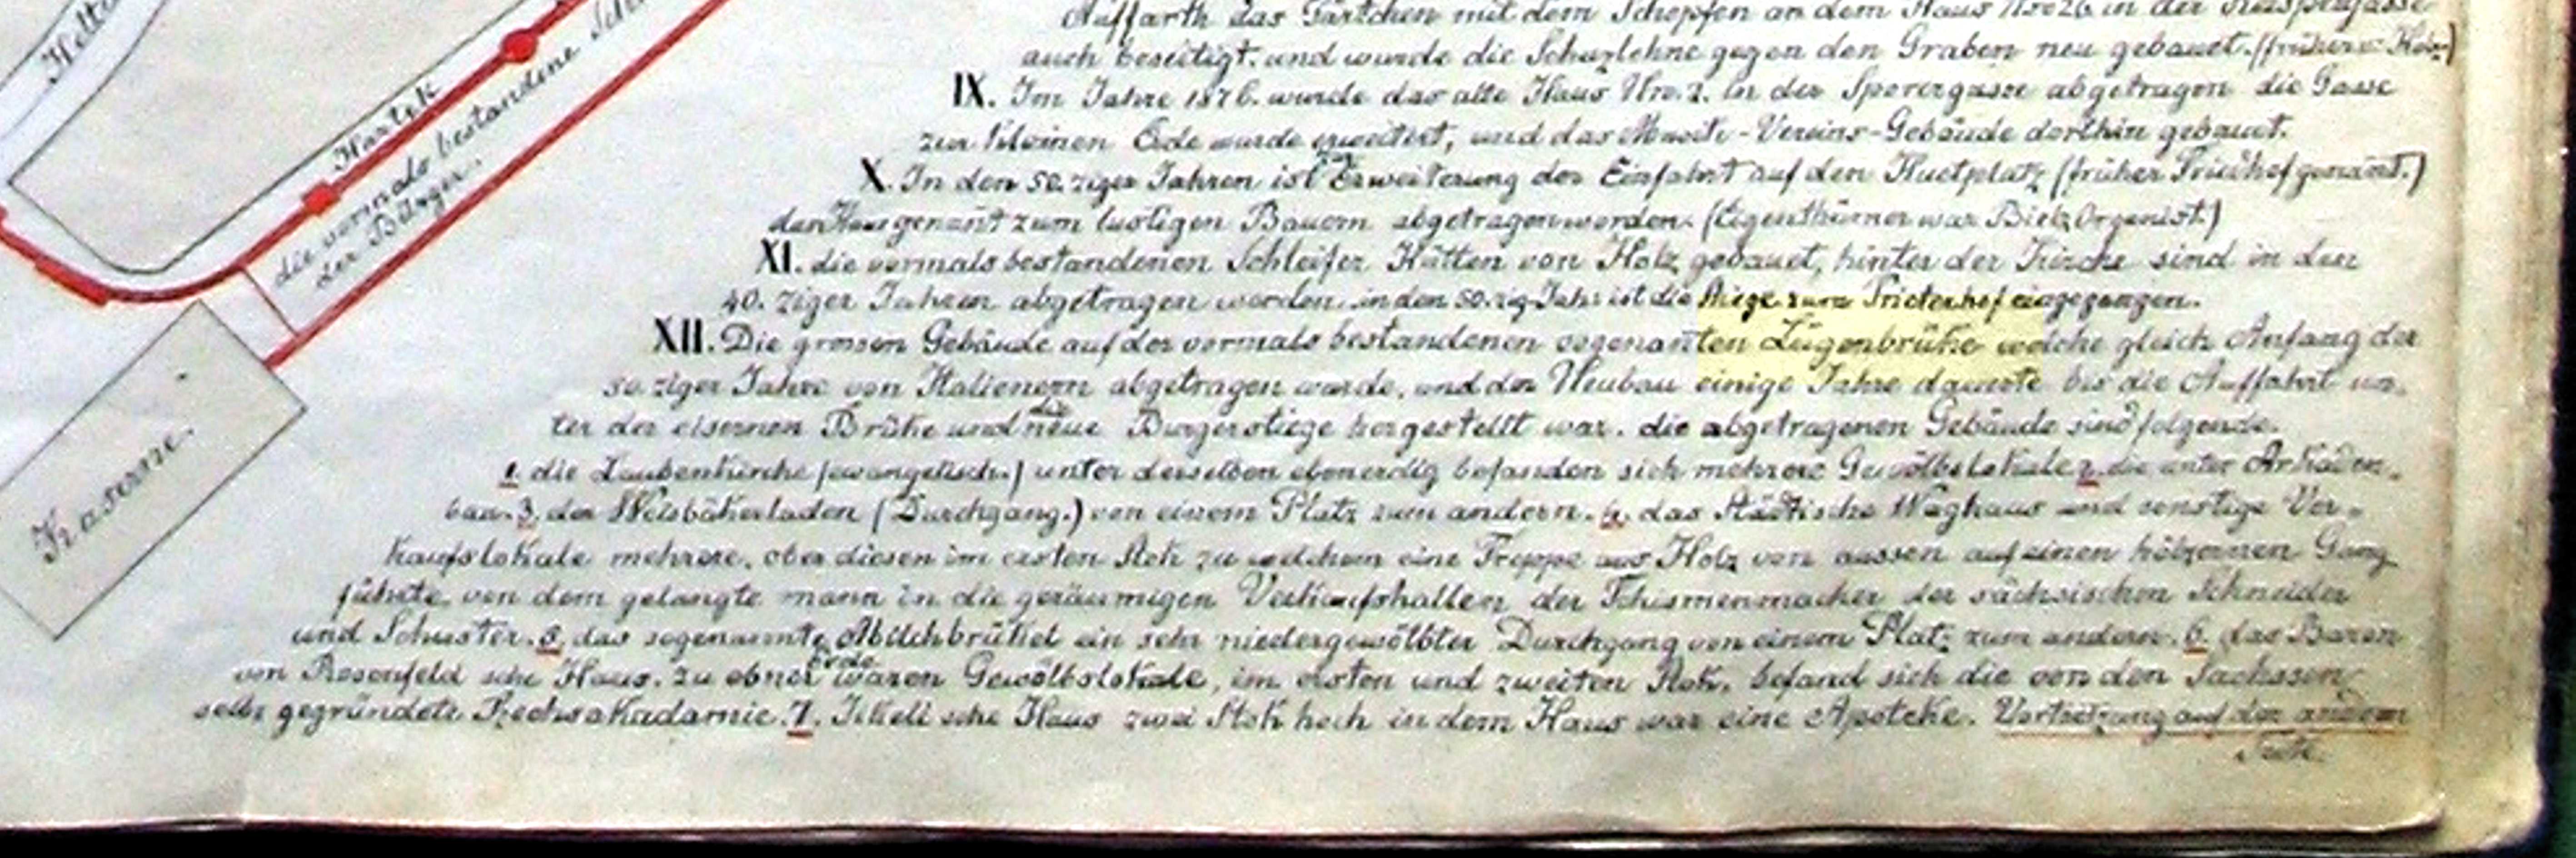 Auffarth das Gärtchen mit dem Schopfen an dem Haus Nro 26 in der
auch beseitigt. und wurde die Schuzlehne gegen den Graben neu gebauet. (früher v: Holz)
IX. Im Jahre 1876. wurde das alte Haus Nro. 2. in der Sporergasse abgetragen die Gasse
zur kleinen Erde wurde erweitert, und das Musik-Vereins-Gebäude dorthin gebauet.
X. In den 50. ziger Jahren ist Erweiterung der Einfahrt auf den Huetplatz (früher Friedhof genant.)
das Haus genant zum lustigen Bauern abgetragen worden. (Eigenthümer war Bielz Organist.)
XI. die vormals bestandenen Schleifer Hütten von Holz gebauet, hinter der Kirche sind in den
40. ziger Jahren abgetragen worden. in den 50. zig Jahr ist die Stiege zum Priesterhof eingegangen.
XII. Die grossen Gebäude auf der vormals bestandenen sogenanten Lügenbrüke welche gleich Anfang der
50. ziger Jahre von Italienern abgetragen wurde, und der Neubau einige Jahre dauerte bis die Auffahrt un-
ter der eisernen Brüke und die neue Burgerstiege hergestellt war. die abgetragenen Gebäude sind folgende.
1. die Laubenkirche (ewangelisch.) unter derselben ebenerdig befanden sich mehrere Gewölbslokale 2. die unter Arkaden-
bau. 3. der Weisbäkerladen (Durchgang.) von einem Platz zum andern. 4. das Städtische Waghaus und sonstige Ver-
kaufslokale mehrere, ober diesen im ersten Stok zu welchem eine Treppe aus Holz von aussen auf einen hölzernen Gang
führte, von dem gelangte mann in die geräumigen Verkaufshallen der Tschismenmacher der sächsischen Schneider
und Schuster. 5. das sogenannte Milchbrükel ein sehr niedergewölbter Durchgang von einem Platz zum andern. 6. das Baron
von Rosenfeld sche Haus. zu ebner Erde waren Gewölbslokale, im ersten und zweiten Stok, befand sich die von den Sachssen
selbs gegründete Rechsakadamie. 7. Jikeli sche Haus zwei Stok hoch in dem Haus war eine Apoteke. Vortsetzung auf der andern
Seite.
Hartek
die vormals bestandene
der Bürger.
Kaserne.